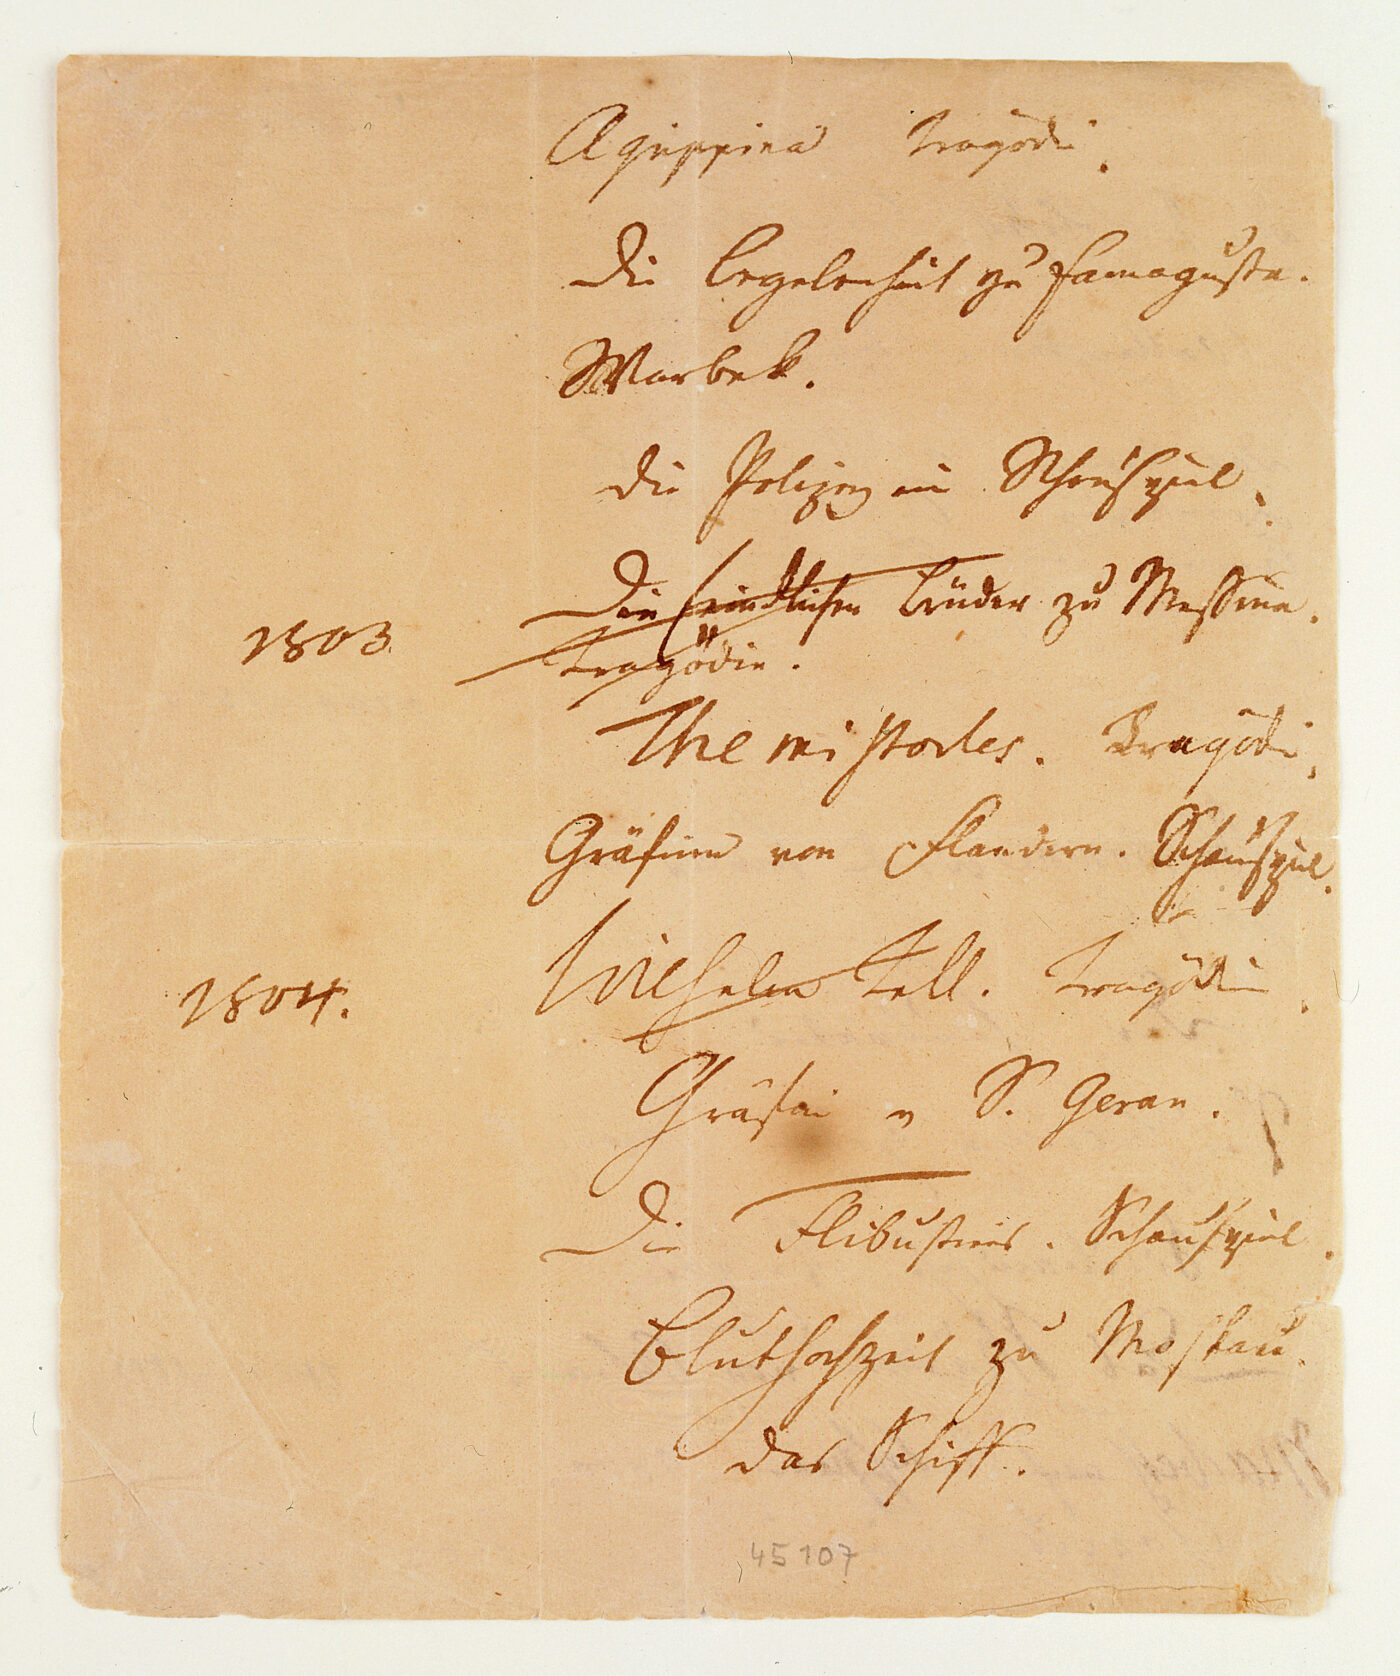 Agrippina Tragödie.
Die Begebenheit zu Famagusta.
Warbek.
Die Polizey ein Schauspiel.
Die feindlichen Brüder zu Messina.
1803. Tragödie.
Themistocles. Tragödie.
Gräfinn von Flandern. Schauspiel.
1804. Wilhelm Tell. Tragödie.
Gräfin v S. Geran.
Die Flibustiers. Schauspiel.
Bluthochzeit zu Moskau.
Das Schiff.
45107